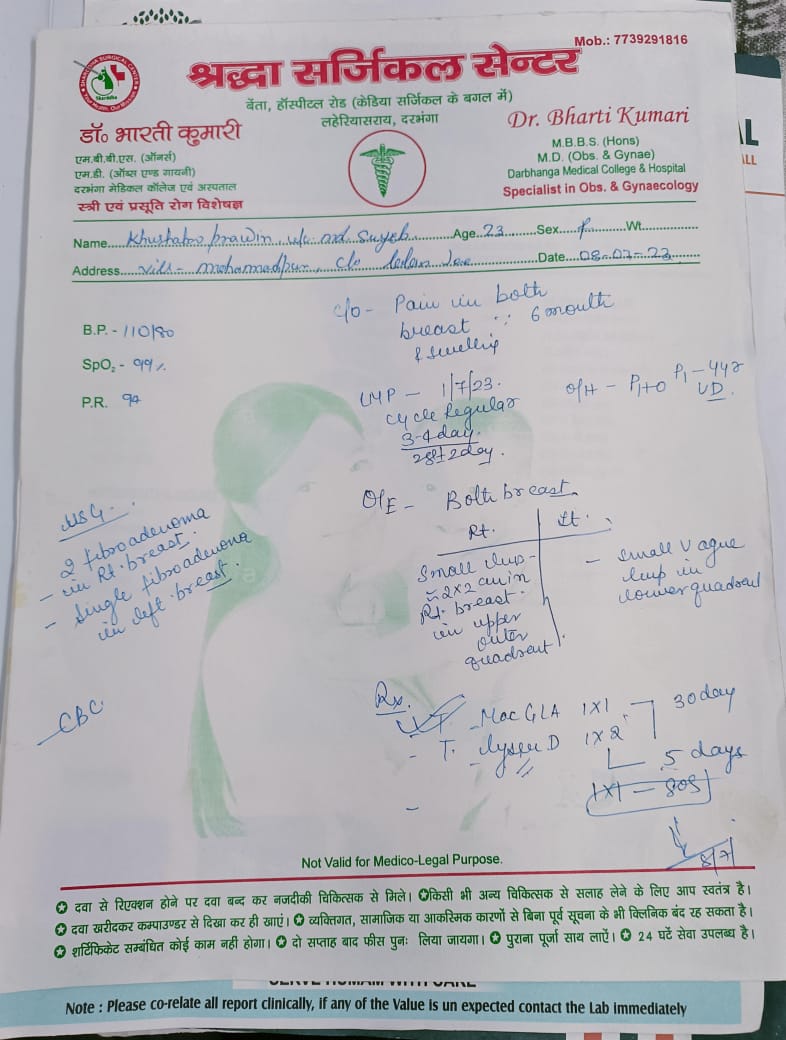 Mob.: 7739291816
श्रद्धा सर्जिकल सेन्टर
बेंता, हॉस्पीटल रोड (केडिया सर्जिकल के बगल में)
लहेरियासराय, दरभंगा
डॉ० भारती कुमारी
एम.बी.बी.एस. (ऑनर्स)
एम.डी. (ऑब्स एण्ड गायनी)
दरभंगा मेडिकल कॉलेज एवं अस्पताल
स्त्री एवं प्रसूति रोग विशेषज्ञ
Dr. Bharti Kumari
M.B.B.S. (Hons)
M.D. (Obs. & Gynae)
Darbhanga Medical College & Hospital
Specialist in Obs. & Gynaecology
Name. Khushaboo prawin w/o md Age. 23 Sex. F Wt.
Address. vill- mohamadpur, c/o Date. 08-07-23
B.P. - 110/80
SpO₂ - 99%
P.R. 94
c/o - Pain in both
breast 6 month
& swelling
LMP - 1/7/23.
cycle Regular
3-4 day.
28±2day.
O/H - P1+0 P1 - 4yr
VD.
O/E - Both breast.
Rt. Lt.
Small lump
≈ 2x2 cm in
Rt. breast.
in upper
outer
quadrant.
- small vague
lump in
lower quadrant
USG.
2 fibroadenoma
- in Rt. breast.
- Single fibroadenoma
in left breast.
CBC
Rx.
T. Mac GLA 1x1 30 day
- T. D 1x2
5 days
1x1 -
8/7/
Not Valid for Medico-Legal Purpose.
दवा से रिएक्शन होने पर दवा बन्द कर नजदीकी चिकित्सक से मिले। किसी भी अन्य चिकित्सक से सलाह लेने के लिए आप स्वतंत्र है।
दवा खरीदकर कम्पाउण्डर से दिखा कर ही खाएं। व्यक्तिगत, सामाजिक या आकस्मिक कारणों से बिना पूर्व सूचना के भी क्लिनिक बंद रह सकता है।
शर्टिफिकेट सम्बंधित कोई काम नही होगा। दो सप्ताह बाद फीस पुनः लिया जायगा। पुराना पूर्जा साथ लाऐं। 24 घटें सेवा उपलब्ध है।
Note : Please co-relate all report clinically, if any of the Value is un expected contact the Lab immediately